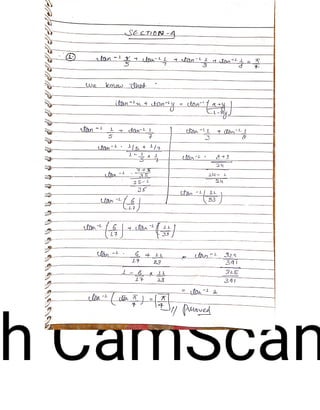 SECTION-A
① tan⁻¹ 1/5 + tan⁻¹ 1/7 + tan⁻¹ 1/3 + tan⁻¹ 1/8 = π/4
we know that
tan⁻¹x + tan⁻¹y = tan⁻¹ (x+y / 1-xy)
tan⁻¹ 1/5 + tan⁻¹ 1/7
tan⁻¹ 1/5 + 1/7 / 1 - 1/5 × 1/7
35
35-1
35
tan⁻¹ (6/17)
tan⁻¹ 1/3 + tan⁻¹ 1/8
tan⁻¹ 8+3
24
24-1
24
tan⁻¹ (11/23)
tan⁻¹ (6/17) + tan⁻¹ (11/23)
tan⁻¹ 6/17 + 11/23 / 1 - 6/17 × 11/23 = tan⁻¹ 325/391 / 325/391
= tan⁻¹ 1
tan⁻¹ (tan π/4) = π/4 // proved
h CamScan